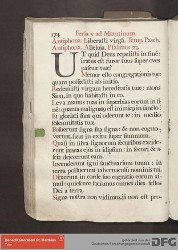 174 Feria v. ad Matutinum.
Antiphona. Liberasti virgā. Temp. Pasch.
Antiphona. Alleluia. Psalmus 73.
UT quid Deus repulisti in fine:
iratus est furor tuus super oves
pascuæ tuæ?
Memor esto congregationis tuæ:
quam possedisti ab initio.
Redemisti virgam hereditatis tuæ: mons
Sion, in quo habitasti in eo.
Leva manus tuas in superbias eorum in fi
nem: quanta malignatus est inimicus in sancto!
Et gloriati sunt qui oderunt te: in medio
solemnitatis tuæ.
Posuerunt signa sua signa: & non cogno
verunt, sicut in exitu super summum.
Quasi in silva lignorum securibus excide
runt januas ejus in idipsum: in securi & a
scia dejecerunt eam.
Incenderunt igni sanctuarium tuum: in
terra polluerunt tabernaculū nominis tui.
Dixerunt in corde suo cognatio eorum si
mul: quiescere faciamus omnes dies festos
Dei a terra.
Signa nostra non vidimus, jam non est pro